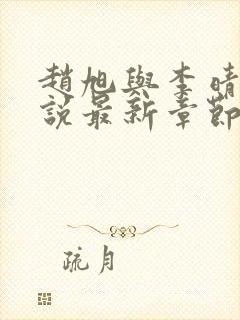 趙旭與李晴
說最新章節
疏月